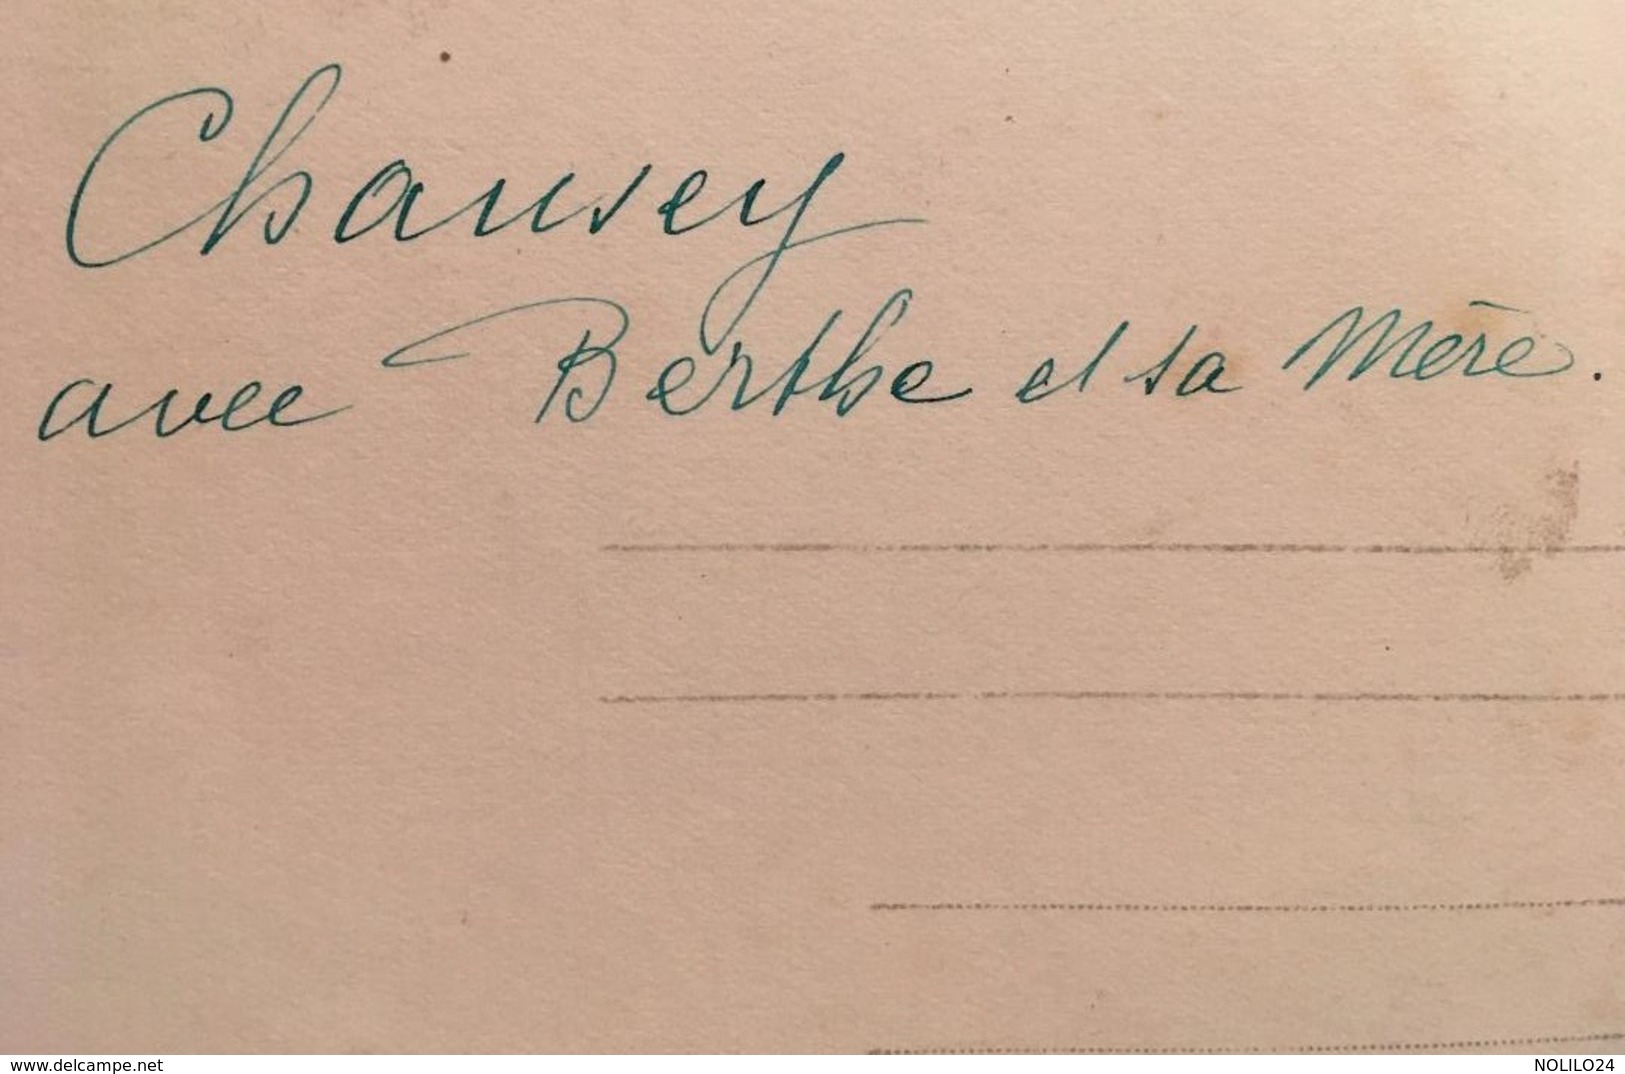 Chausey
avec Berthe et sa Mère.
www.delcampe.net
NOLILO24